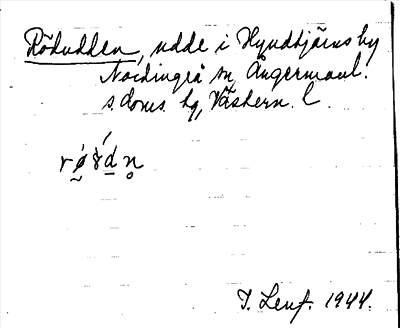 Rödudden, udde i Hyndtjärns by
Nordingrå sn, Ångermanl.
s. doms. hg, Västern. l.
I. Lenf. 1944.